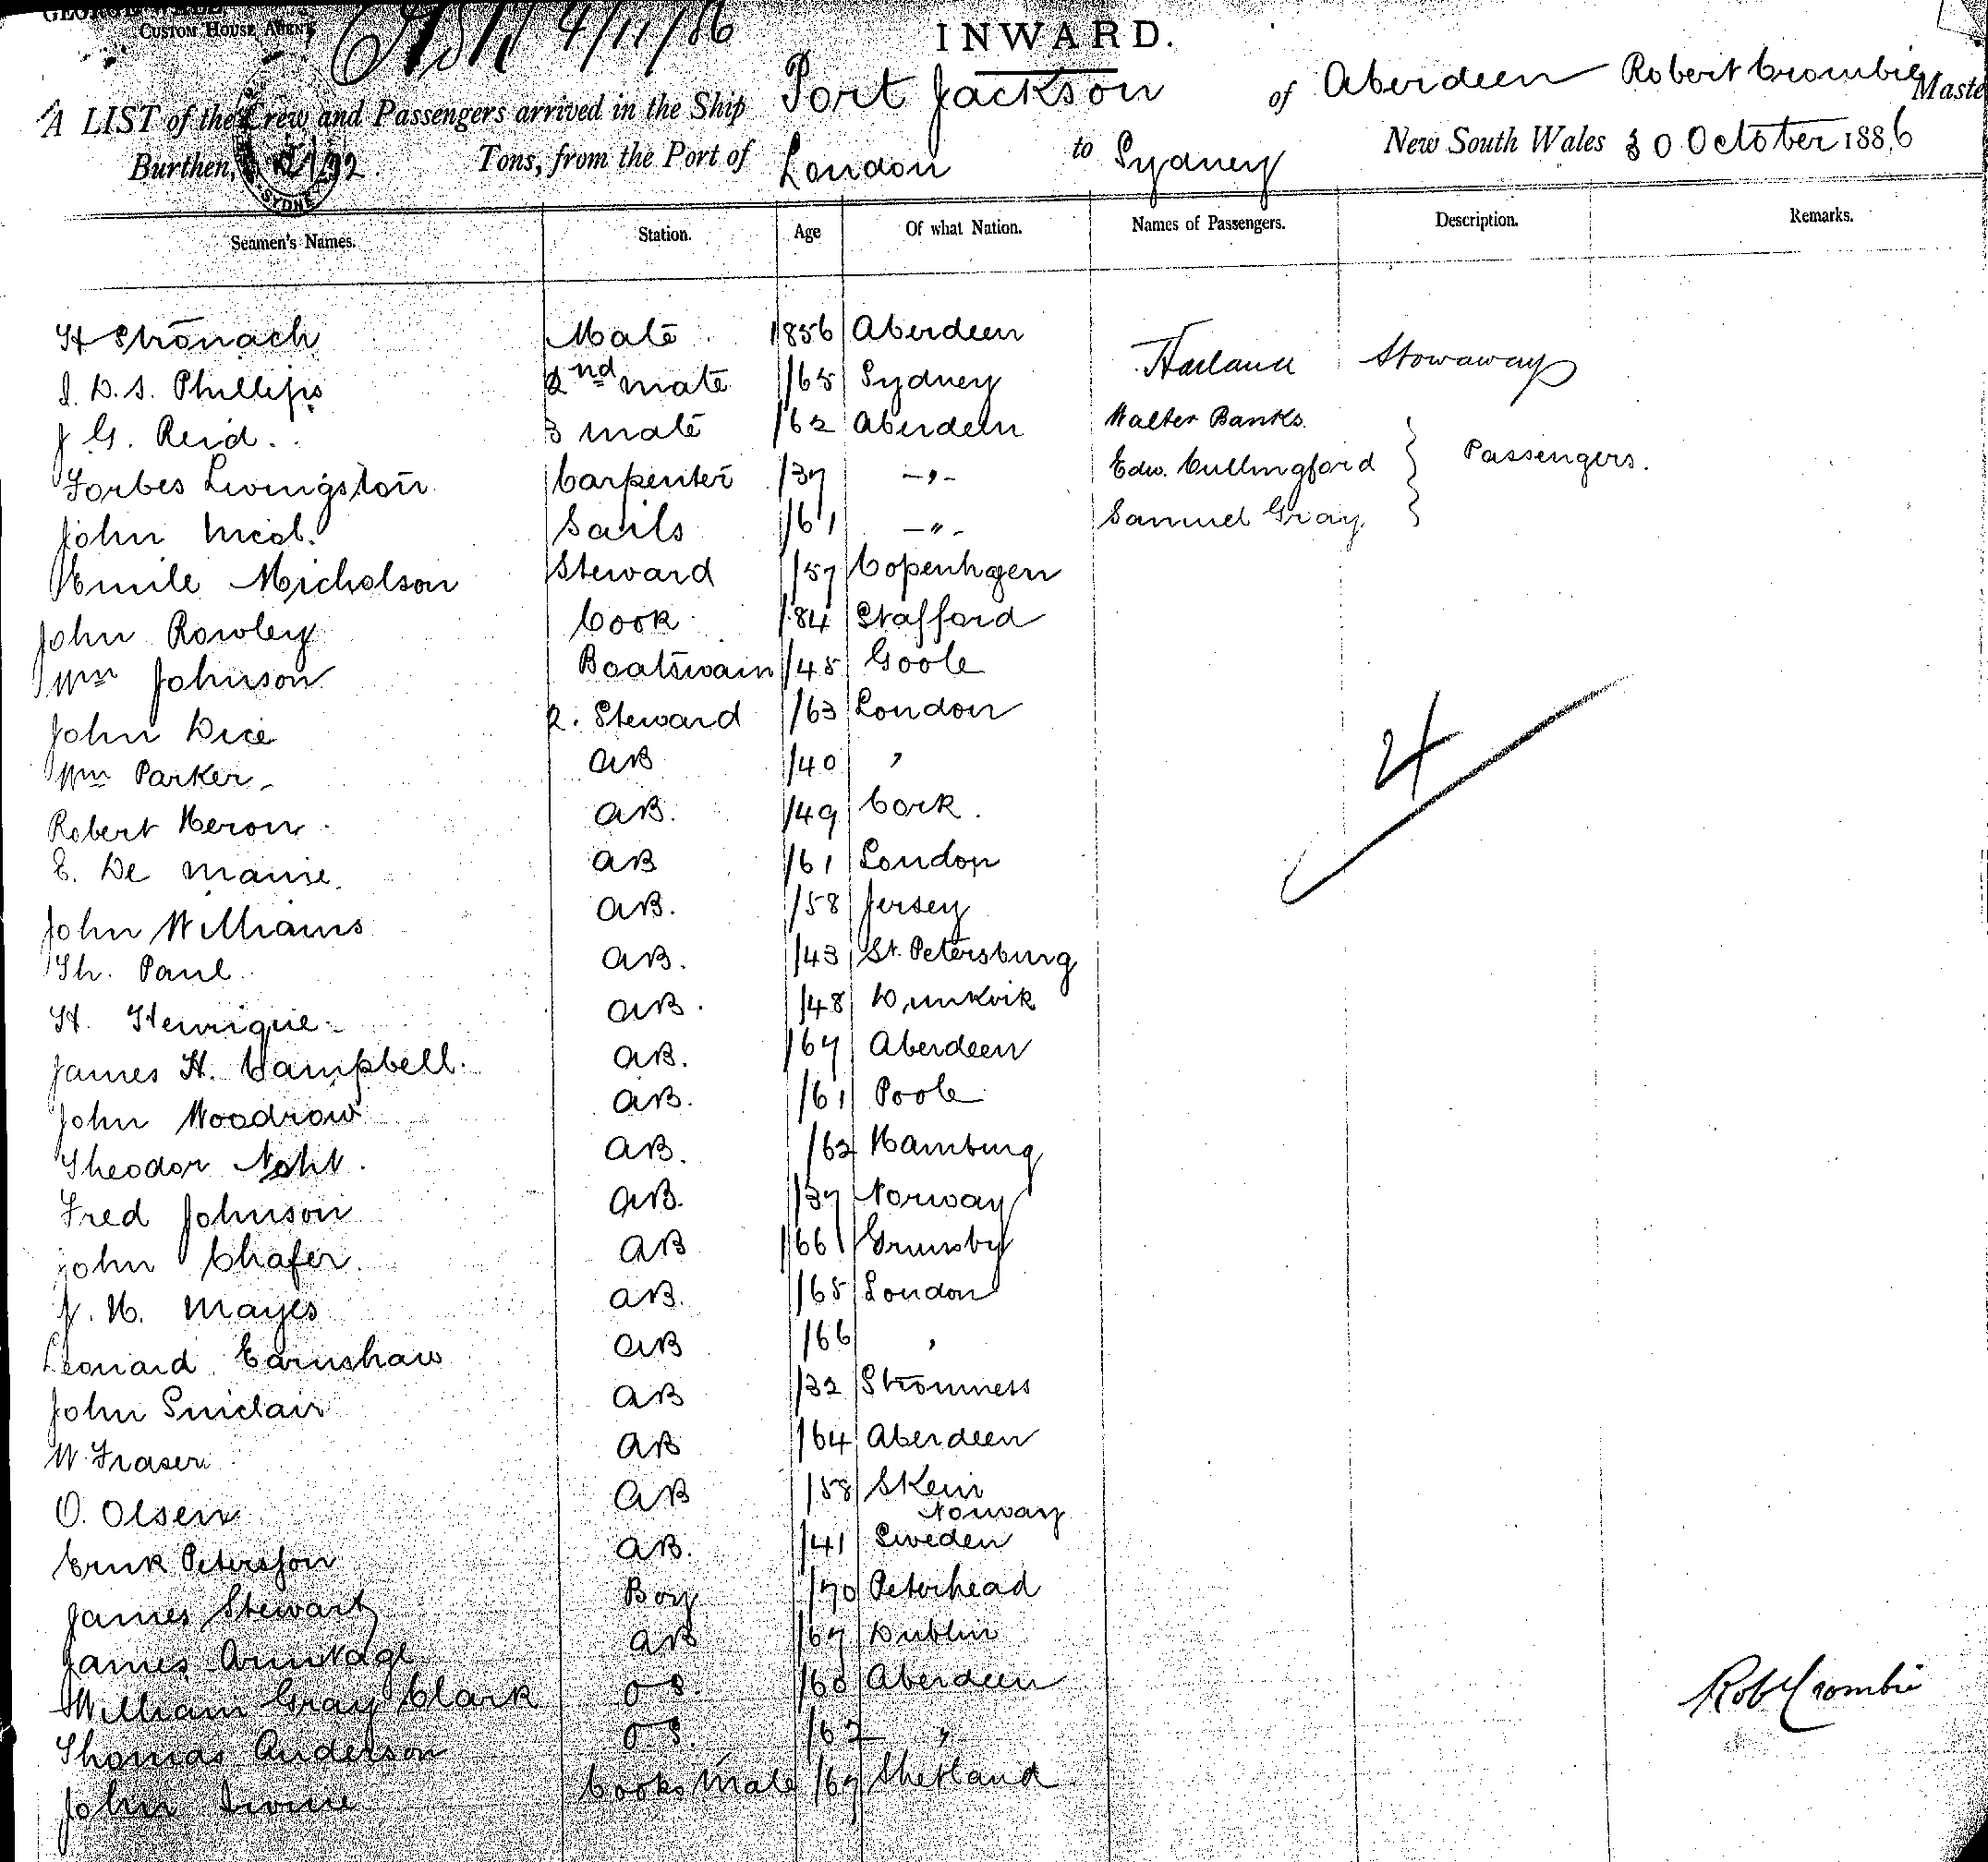 CUSTOM HOUSE AGENT
4/11/86
INWARD.
A LIST of the Crew and Passengers arrived in the Ship Port Jackson of Aberdeen Robert Crombie Maste
Burthen, Tons, from the Port of London to Sydney New South Wales 30 October 1886
Seamen's Names. Station. Age Of what Nation. Names of Passengers. Description. Remarks.
H Stronach Mate 1856 Aberdeen
Harland Stowaway
J. D. S. Phillips 2nd mate /65 Sydney
J G. Reid. 3 mate /62 Aberdeen Walter Banks.
Forbes Livingston Carpenter /37 -"- Edw. Cullingford } Passengers.
John Nicol. Sails /61 -"- Samuel Gray.
Emile Nicholson Steward /57 Copenhgen
John Rowley Cook /84 Stafford
Wm Johnson Boatswain /45 Goole
John Dice 2. Steward /63 London
Wm Parker AB /40 "
Robert Heron AB. /49 Cork.
E. De AB /61 London
John Williams AB. /58 Jersey
Th. Paul AB. /43 St. Petersburg
H. Henrique AB. /48 Dunkirk
James H. Campbell. AB. /67 Aberdeen
John Woodrow AB. /61 Poole
Theodor AB. /62 Hamburg
Fred Johnson AB. /37 Norway
John Chafer. AB /66 Grimsby
J. H. Mayes AB. /65 London
Leonard Earnshaw AB /66 "
John Sinclair AB /32 Stromness
W. Fraser AB /64 Aberdeen
O. Olsen AB /58 Skein
Norway
Erik Petersson AB. /41 Sweden
James Stewart Boy /70 Peterhead
James Armitage AB /67 Dublin
William Gray Clark OS. /60 Aberdeen
Thomas Anderson OS. /62 "
John Irvine Cooks Mate /67 Shetland
4
Robt Crombie